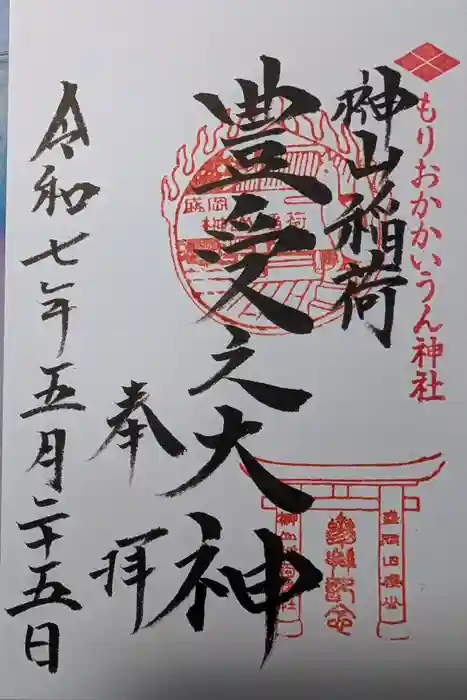 もりおかかいうん神社
榊山稲荷
豊受之大神
奉拝
令和七年五月二十五日
盛岡
参拝記念